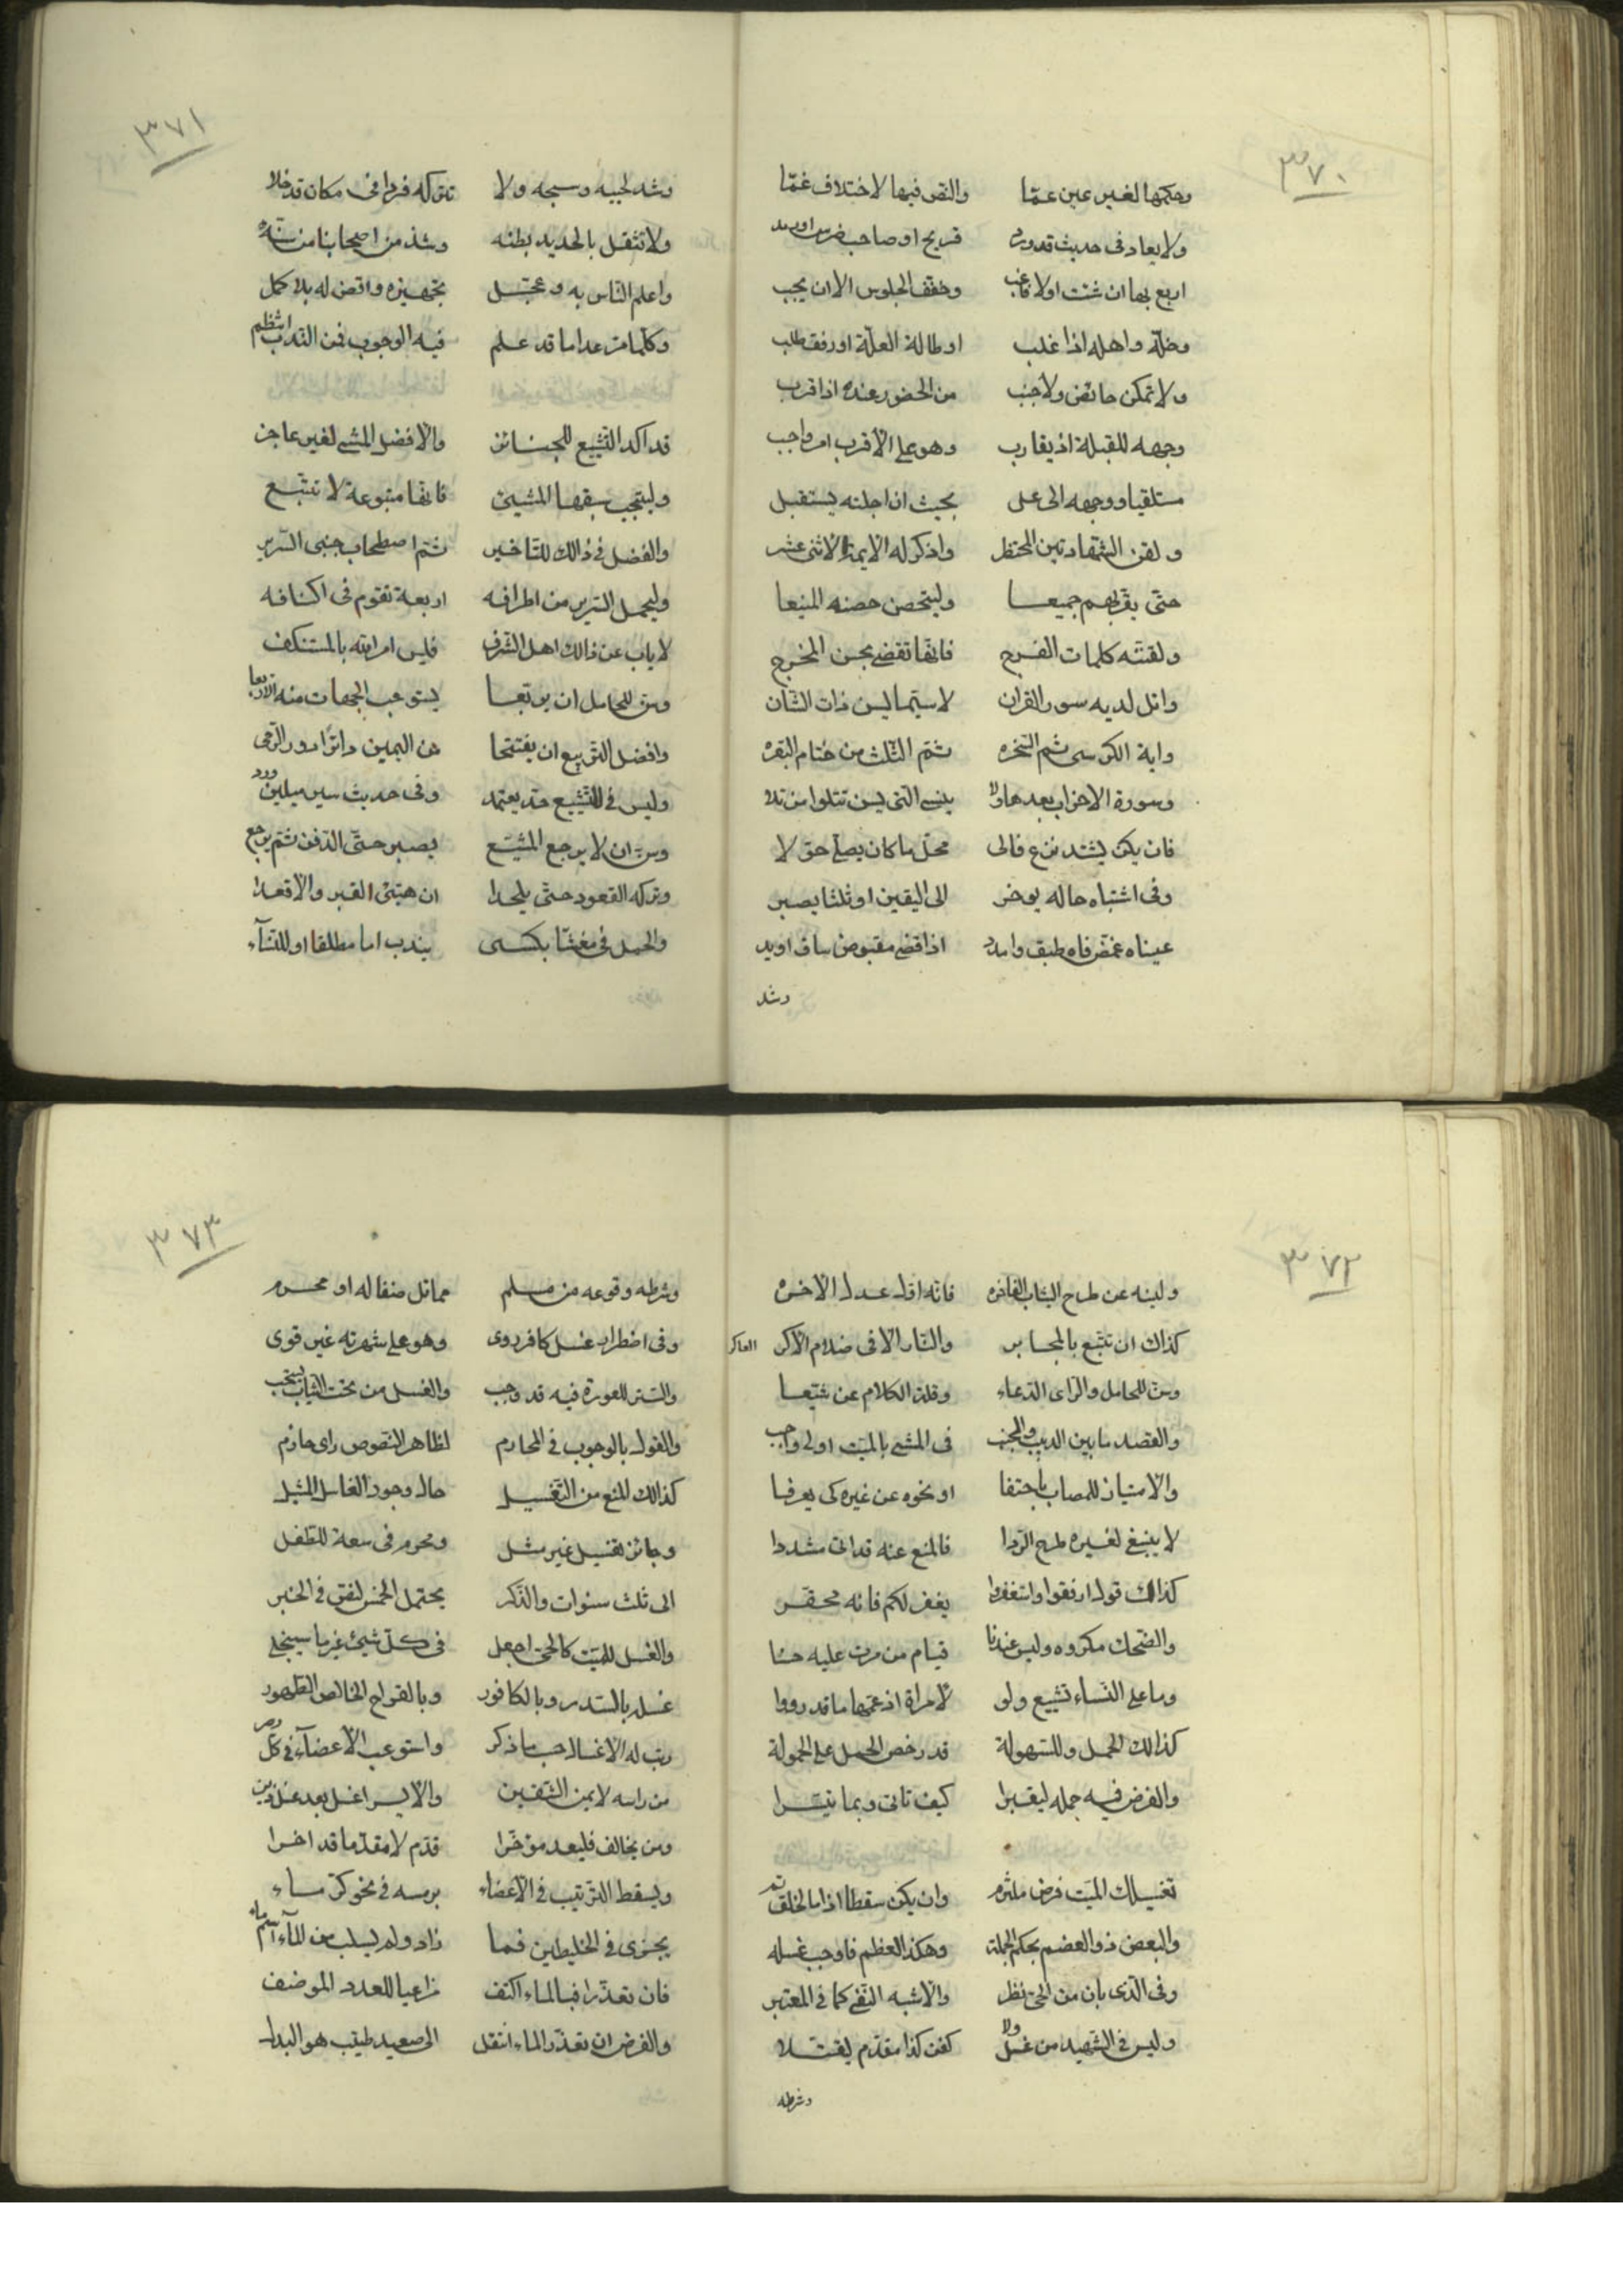 ٣٧٠
وحكمها لغير عين عمّا والنص فيها لاختلاف غمّا
ولا يعاد في حديث قد ورد قريح او صاحب ضرس او رمد
اربع بها ان شئت او لا فاغب وخفف الجلوس الا ان يحب
وخلّه واهله اذا غلب او طالة العلّة او رفق طلب
ولا تمكن حائض ولا جنب من الحضور عنده اذا قرب
وجهه للقبلة اذ يقارب وهو على الأقرب امر واجب
مستلقيا ووجهه الى على بحيث ان اجلسته يستقبل
ولقن الشهادتين المحتظر واذكر له الأيمة الاثنى عشر
حتّى يقرّ بهم جميعا وليتحصن حصنه المنيعا
ولقنّه كلمات الفرج فانّها تقضى بحسن المخرج
واتل لديه سور القران لا سيّما ليس ذات الشان
واية الكرسى ثم السخره ثمّ الثلث من ختام البقره
وسورة الاحزاب بعدها ولا ينسى التى ليس تتلوا من تلا
فان يكن يشتد نزع فالى محلّ ما كان يصلّى حوّلا
وفى اشتباه حاله يوخر الى اليقين او ثلثا يصبر
عيناه غمّض فاه طبق وامدد اذا قضى مقبوض ساق او يد
وشد
٣٧١
وشد لحييه وسجه ولا تتركه فردا فى مكان قد خلا
ولا تثقل بالحديد بطنه وشذ من اصحابنا من سنّه
واعلم النّاس به وعجّل تجهيزه واقض له بلا كمل
وكلّما مرّ عدا ما قد علم فيه الوجوب فمن النّدب انتظم
قد اكد التّشييع للجنائز والأفضل المشى لغير عاجز
وليتجنب سبقها المشيّع فانّها متبوعة لا تتبع
والفضل فى ذالك للتّاخير ثمّ اصطحاب جنبى السّرير
وليحمل السّرير من اطرافه اربعة تقوم فى اكنافه
لا ياب عن ذالك اهل الشّرف فليس امر الله بالمستنكف
وسن للحامل ان يربّعا يستوعب الجهات منه الاربعا
وافضل التّربيع ان يفتتحا من اليمين دائرا دور الرّحى
وليس فى التّشييع حدّ يعتمد وفى حديث سير ميلين ورد
وسنّ ان لا يرجع المشيّع يصبر حتّى الدّفن ثمّ يرجع
وتركه القعود حتّى يلحدا ان هيئ القبر والّا قعدا
والحمل فى مغشّا بكسى يندب اما مطلقا او للنّسآء
٣٧٢
ولينه عن طرح الثياب الفاخره فانه اقلّ عدل الاخره
كذاك ان تتبع بالمجامر والنّار الّا فى ضلام الأكر العاكر
وسن للحامل والرّاى الدّعاء وقلّة الكلام عن شيّعا
والقصد ما بين الدبيب والخبب فى المشى بالميّت اولى واحب
والامتياز للمصاب باحتفا او نحوه عن غيره كى يعرفا
لا ينبغى لغيره طرح الرّدا فالمنع عنه قد اتى مشددا
كذالك قول ارفقوا واستغفروا يغفر لكم فانه محقّر
والضّحك مكروه وليس عندنا قيام من مرت عليه حسنا
وما على النّساء تشييع ولو لامراة اذ عمّها ما قد رووا
كذالك الحمل وللسّهولة قد رخص الحمل على الحمولة
والفرض فيه حمله ليقبرا كيف تاتى وبما تيسّرا
تغسيلك الميّت فرض ملتزم وان يكن سقطا اذا ما الخلق تم
والبعض ذو العضم بحكم الجملة وهكذا العظم فاوجب غسله
وفى الّذى بان من الحىّ نظر والأشبه النّفى كما فى المعتبر
وليس فى الشّهيد من غسل ولا كفن كذا مقدّم ليقتلا
وشرطه
٣٧٣
وشرطه وقوعه من مسلم مماثل صنفا له او محرم
وفى اضطرار غسل كافر روى وهو على شهرته غير قوى
والستر للعورة فيه قد وجب والغسل من تحت الثياب يستحب
والقول بالوجوب فى المحارم لظاهر النّصوص راى حازم
كذالك المنع من التّغسيل حال وجود الغاسل المثيل
وجائز تغسيل غير مثل ومحرم فى سعة للطّفل
الى ثلث سنوات والذّكر يحتمل الخمس لفرق فى الخبر
والغسل للميّت كالحىّ اجعل فى كلّ شيئ غير ما سينجلى
غسل بالسّدر وبالكافور وبالقراح الخالص الطّهور
رتب له الأغسال حسب ما ذكر واستوعب الأعضآء فى كلّ ومر
من راسه لايمن الشّقين والأيسر اغسل بعد غسل ذين
ومن يخالف فليعد مؤخّرا قدّم لا مقدّما قد اخرا
ويسقط التّرتيب فى الأعضاء برمسه فى نحو كرّ ماء
يجزى فى الخليطين فما زاد ولم يسلب من المآء اسم ماء
فان تعذّرا فبالماء اكتف مراعيا للعدد الموضف
والفرض ان تعذّر الماء انتقل الى صعيد طيّب هو البدل